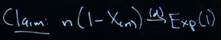 Claim: n(1-X₍ₙ₎) →(d) Exp(1)